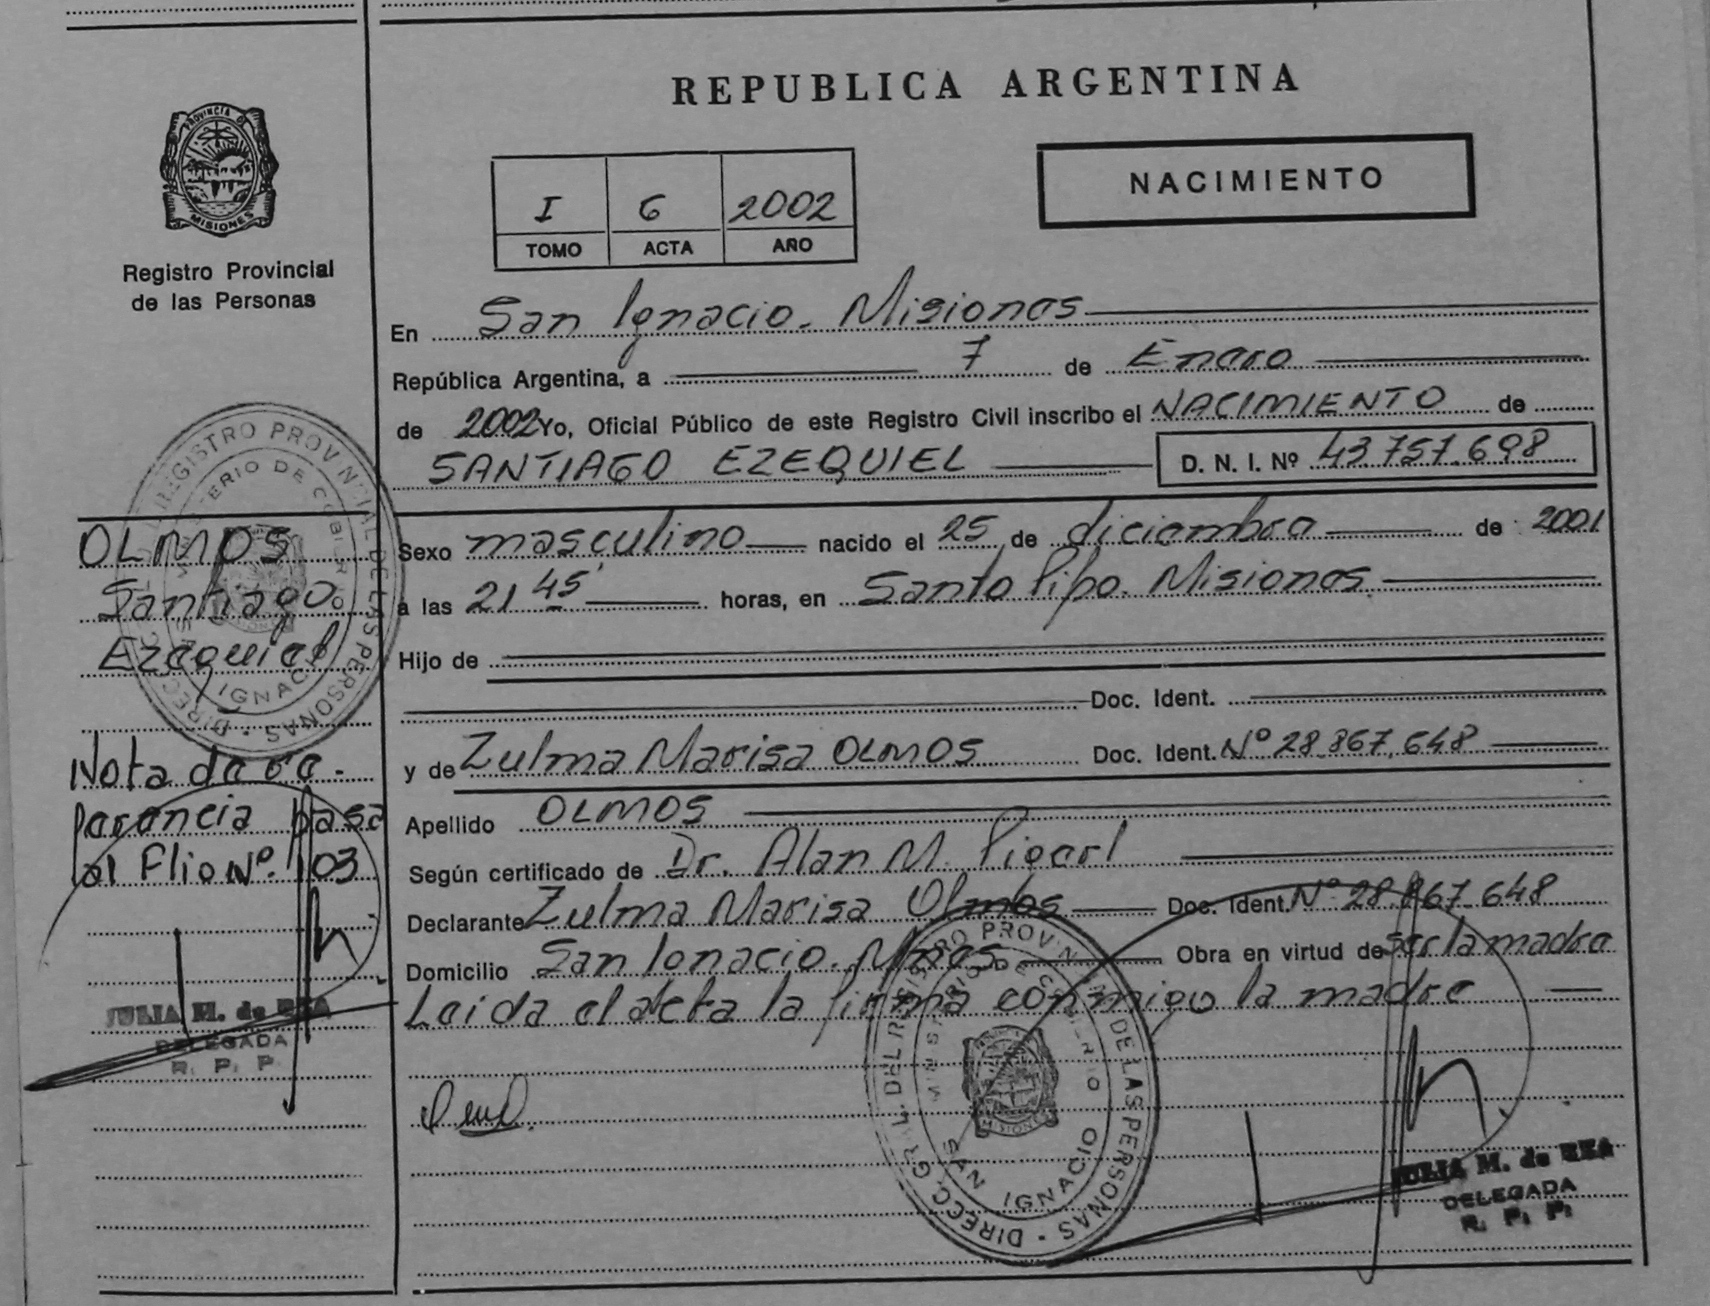 REPUBLICA ARGENTINA
PROVINCIA D
MISIONES
Registro Provincial
de las Personas
NACIMIENTO
I 6 2002
TOMO ACTA AÑO
En San Ignacio. Misiones
República Argentina, a 7 de Enero
de 2002 Yo, Oficial Público de este Registro Civil inscribo el NACIMIENTO de
SANTIAGO EZEQUIEL D. N. I. Nº 43.757.698
OLMOS
Santiago
Ezequiel
Sexo masculino nacido el 25 de diciembre de 2001
a las 21 45' horas, en Santo Pipo. Misiones
Hijo de
Doc. Ident.
y de Zulma Marisa OLMOS Doc. Ident. Nº 28.867.648
Nota de re-
ferencia pasa
al Flio Nº. 103
Apellido OLMOS
Según certificado de Dr. Alan M.
Declarante Zulma Marisa Olmos Doc. Ident. Nº 28.867.648
Domicilio San Ignacio. Mnes. Obra en virtud de ser la madre
Leida el acta la firma conmigo la madre
JULIA M. de REA
DELEGADA
R. P. P.
DIRECC. GRAL. DEL REGISTRO PROVINCIAL DE LAS PERSONAS
MINISTERIO DE GOBIERNO
SAN IGNACIO
MISIONES
JULIA M. de REA
DELEGADA
R. P. P.